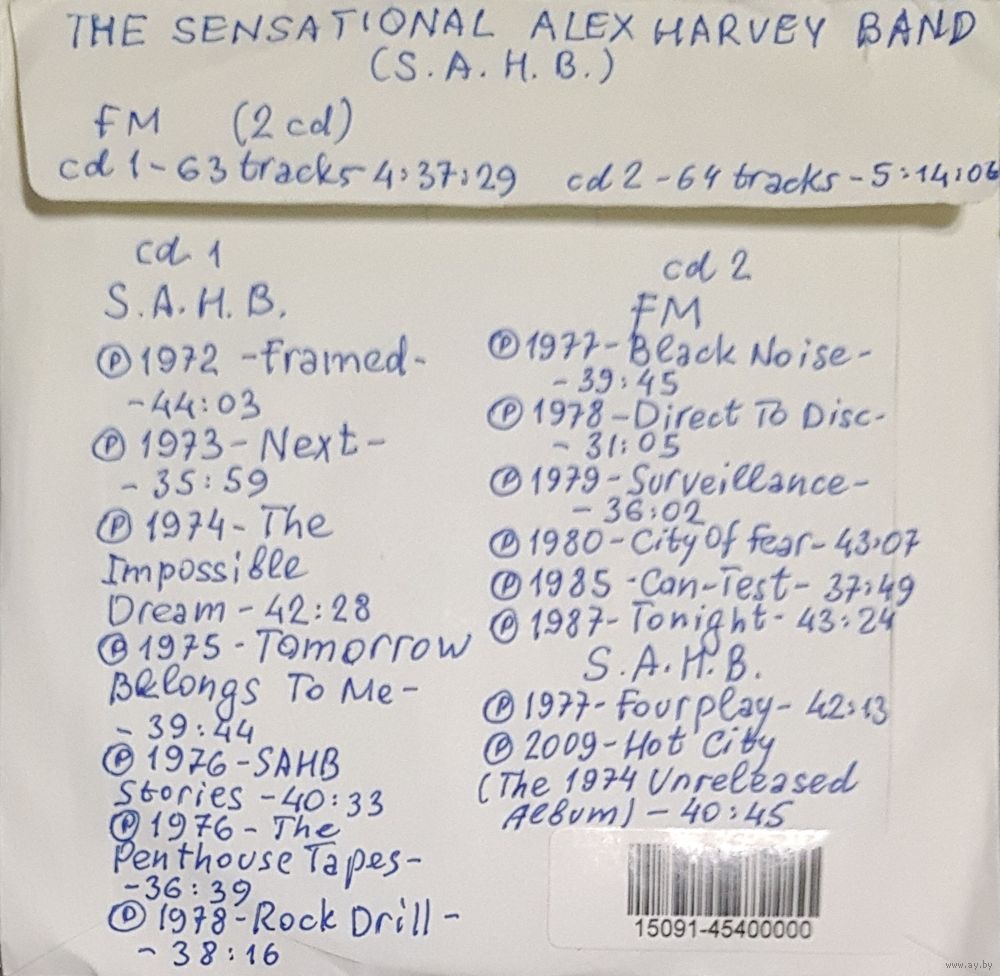 THE SENSATIONAL ALEX HARVEY BAND
(S.A.H.B.)
FM (2 cd)
cd 1 - 63 tracks - 4:37:29 cd 2 - 64 tracks - 5:14:06
cd 1
S.A.H.B.
Ⓟ 1972 - Framed -
- 44:03
Ⓟ 1973 - Next -
- 35:59
Ⓟ 1974 - The
Impossible
Dream - 42:28
Ⓟ 1975 - Tomorrow
Belongs To Me -
- 39:44
Ⓟ 1976 - SAHB
Stories - 40:33
Ⓟ 1976 - The
Penthouse Tapes -
- 36:39
Ⓟ 1978 - Rock Drill -
- 38:16
cd 2
FM
Ⓟ 1977 - Black Noise -
- 39:45
Ⓟ 1978 - Direct To Disc -
- 31:05
Ⓟ 1979 - Surveillance -
- 36:02
Ⓟ 1980 - City Of Fear - 43:07
Ⓟ 1985 - Con-Test - 37:49
Ⓟ 1987 - Tonight - 43:24
S.A.H.B.
Ⓟ 1977 - Fourplay - 42:13
Ⓟ 2009 - Hot City
(The 1974 Unreleased
Album) - 40:45
15091-45400000
www.ay.by